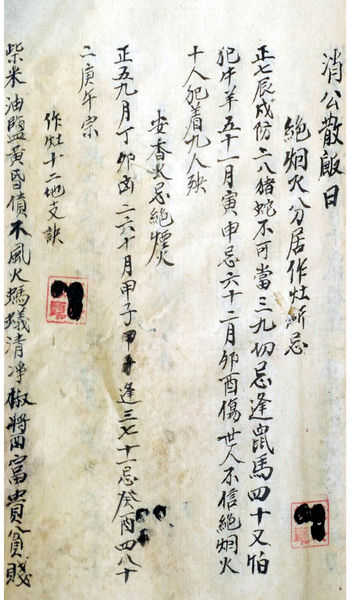 消公散飯日
絕烟火分居作灶所忌
正七辰戌防二八猪蛇不可當三九切忌逢鼠馬四十又怕
犯牛羊五十一月寅申忌六十二月卯酉傷世人不信絕烟火
十人犯着九人殃
安香火忌絕煙火
正五九月丁卯凶二六十月甲子逢三七十一忌癸酉四八十
二庚午宗
作灶十二地支訣
柴米油鹽黃昏債不風火螞蟻清凈富貴貧賤